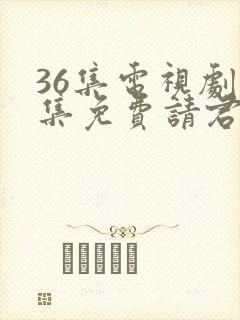 36集電視劇
集免費請君